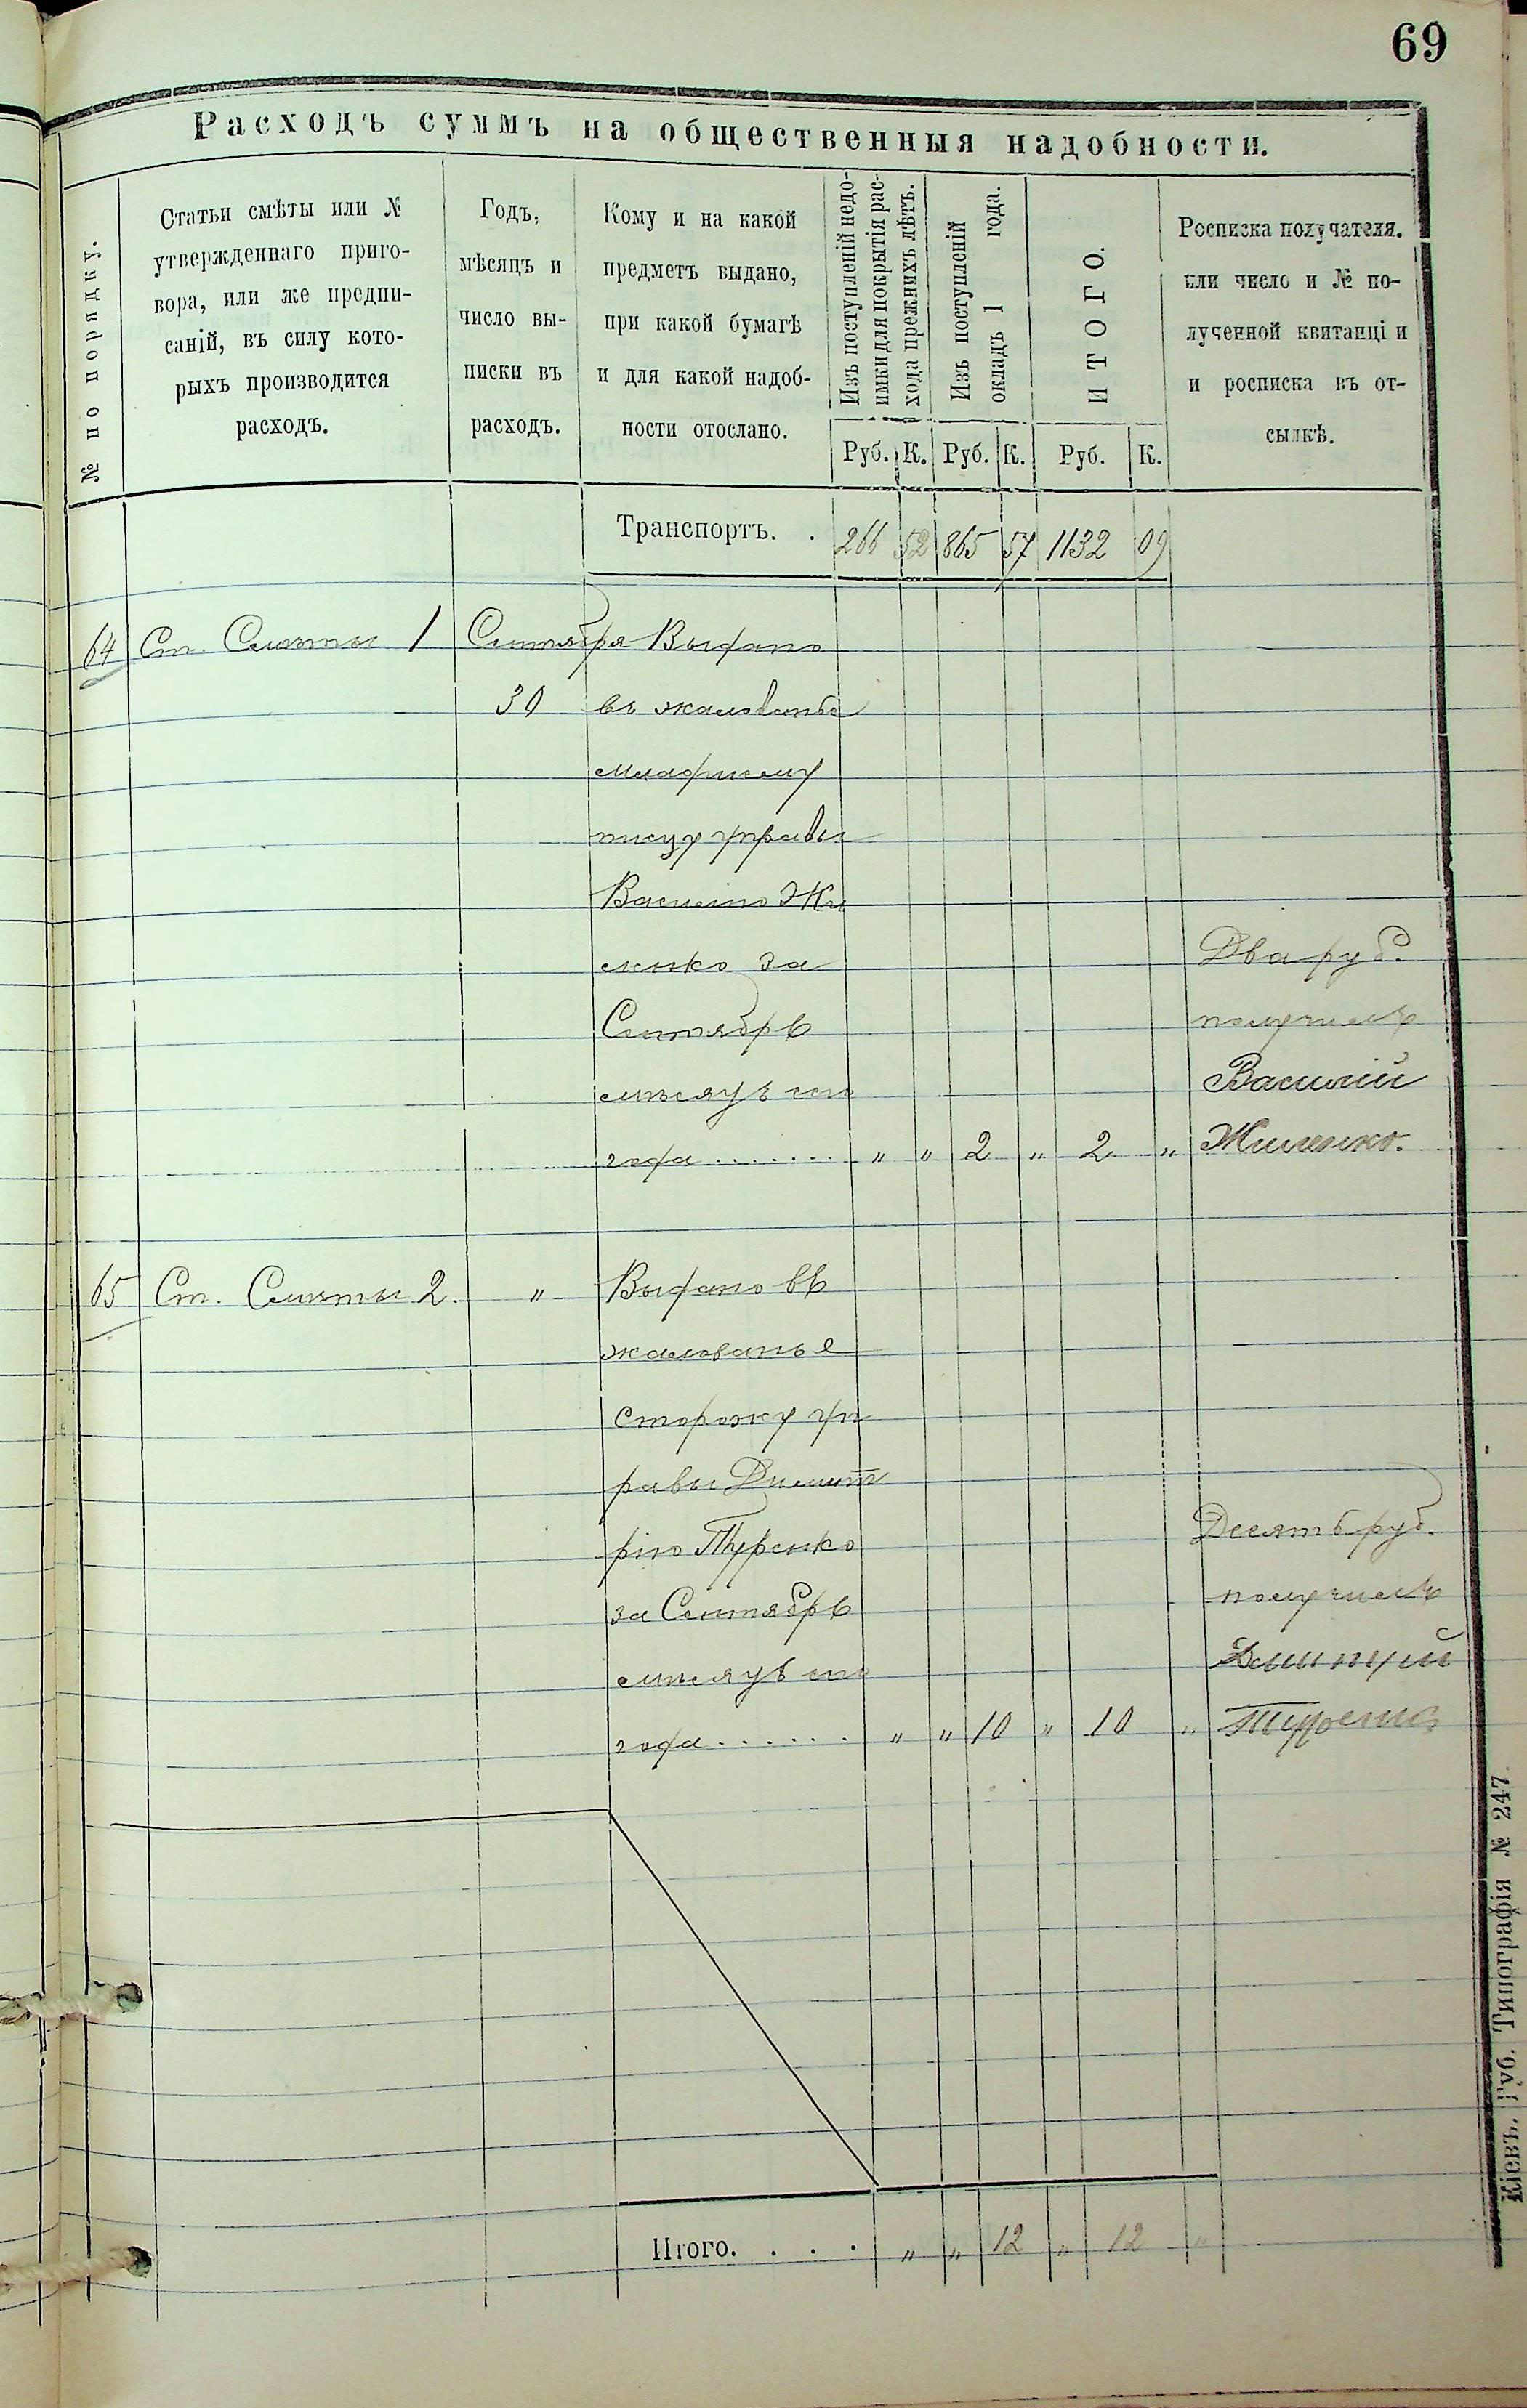 69
Расходъ суммъ на общественныя надобности.
№ по порядку.
Статьи смѣты или №
утвержденнаго приго-
вора, или же предпи-
саній, въ силу кото-
рыхъ производится
расходъ.
Годъ,
мѣсяцъ и
число вы-
писки въ
расходъ.
Кому и на какой
предметъ выдано,
при какой бумагѣ
и для какой надоб-
ности отослано.
Изъ поступленій недо-
имки для покрытія рас-
хода прежнихъ лѣтъ.
Изъ поступленій
окладъ 1 года.
ИТОГО.
Росписка получателя.
или число и № по-
лученной квитанціи
и росписка въ от-
сылкѣ.
Руб. К. Руб. К. Руб. К.
Транспортъ. . 266 52 865 57 1132 09
64 Ст. Смѣты 1 Сентября Выдано
30 въ жалованье
младшему
писцу управы
Василію Жи
ленко за
Сентябрь
мѣсяцъ сего
года ....... " " 2 " 2 "
Два руб.
получилъ
Василій
Жиленко.
65 Ст. Смѣты 2. " Выдано въ
жалованье
сторожу уп
равы Димит
рію Туренко
за Сентябрь
мѣсяцъ сего
года ...... " " 10 " 10 "
Десять руб.
получилъ
Дмитрій
Туренко
Итого. . . . " " 12 " 12 "
Кіевъ. Губ. Типографія № 247.